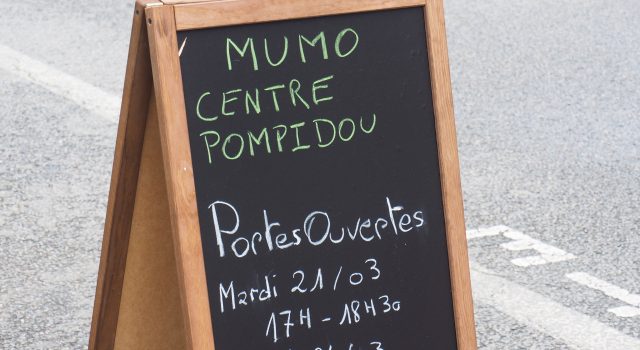 MUMO
CENTRE
POMPIDOU
Portes Ouvertes
Mardi 21/03
17H - 18H30